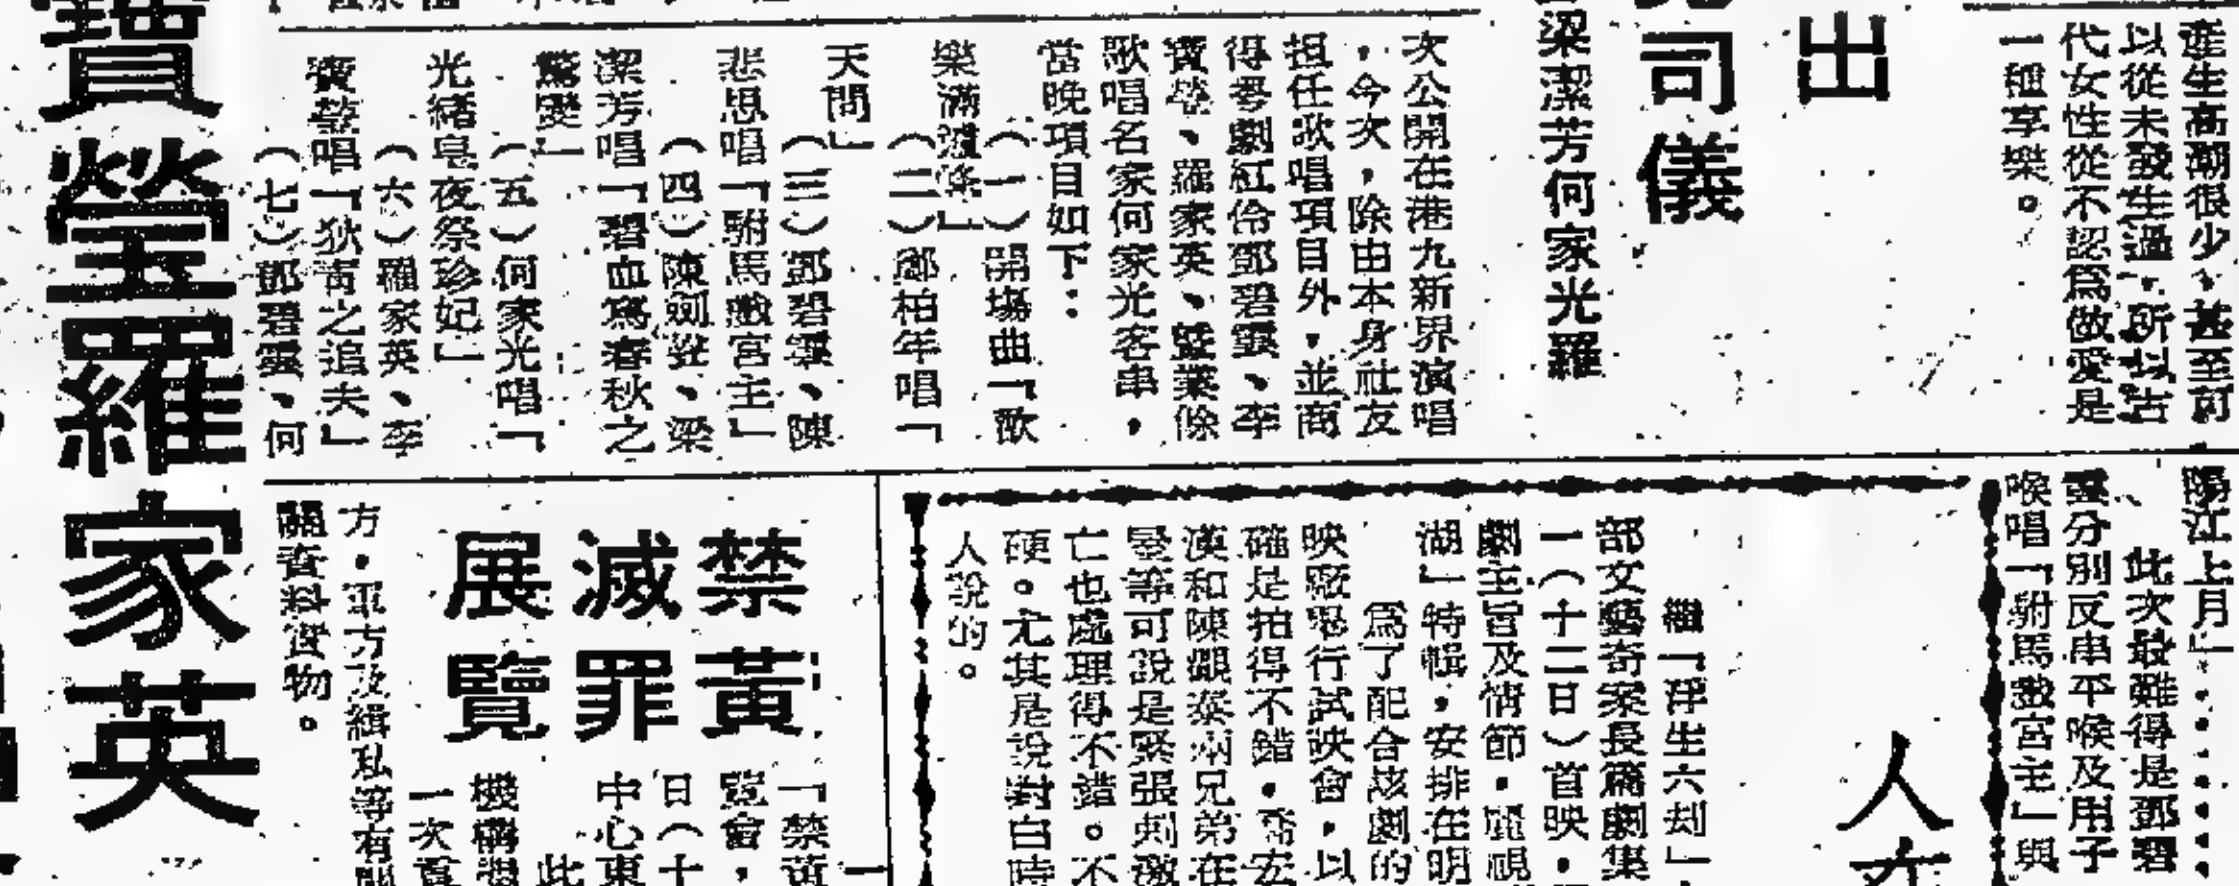 產生高潮很少，甚至前
以從未發生過，所以古
代女性從不認為做愛是
一種享樂。
出
司儀
梁潔芳何家光羅
次公開在港九新界演唱
，今次，除由本身社友
担任歌唱項目外，並商
得粵劇紅伶鄧碧雲、李
寶瑩、羅家英、暨業餘
歌唱名家何家光客串，
當晚項目如下：
（一）開塲曲「歌
樂滿瀘條」
（二）鄺柏年唱「
天問」
（三）鄧碧雲、陳
悲思唱「駙馬戲宮主」
（四）陳劍聲、梁
潔芳唱「碧血寫春秋之
驚變」
（五）何家光唱「
光緒皂夜祭珍妃」
（六）羅家英、李
寶瑩唱「狄青之追夫」
（七）鄧碧雲、何
寶瑩羅家英
陽江上月」
、此次最難得是鄧碧
雲分別反串平喉及用子
喉唱「駙馬戲宮主」與
人
繼「浮生六刦」
部文藝奇案長篇劇集
一（十二日）首映，
劇主旨及情節，麗視
湖」特輯，安排在明
為了配合該劇的
映廠舉行試映會，以
確是拍得不錯，喬宏
漢和陳觀泰兩兄弟在
晏等可說是緊張刺激
亡也處理得不錯。不
硬。尤其是說對白時
人說的。
禁黃
滅罪
展覽
「禁黃
覽會，
日（十
中心東
此
機構提
一次直
方，軍方及緝私等有關
關資料實物。